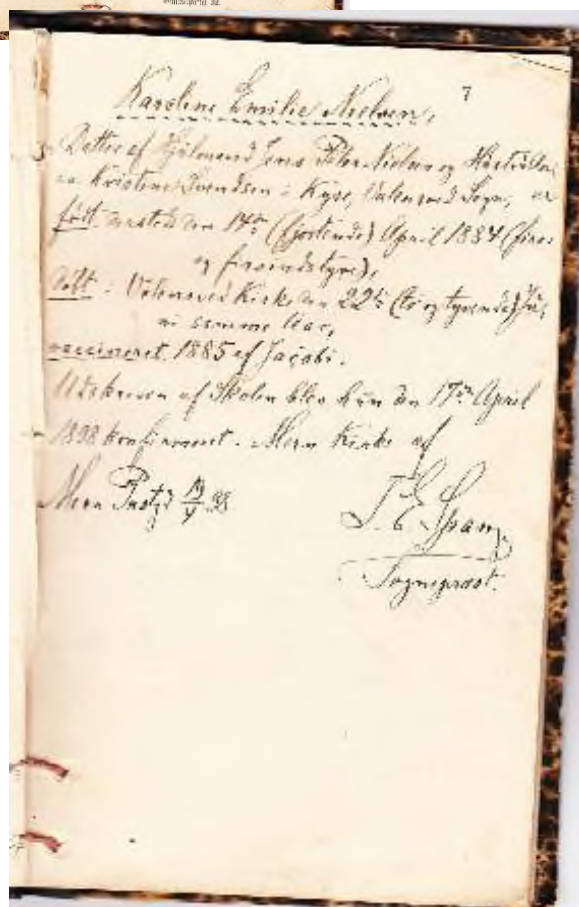 7
Karoline Emilie Nielsen,
Datter af Hjulmand Jens Peter Nielsen og Hustru
Kristine Svendsen i Kyse, Sogn, er
født den 14de (fjortende) April 1884 (fire
og firsindstyve),
døbt i Kirke den 22de (to og tyvende) Ju,
ni samme Aar,
vaccineret 1885 af Jacobi.
Udskreven af Skolen blev hun den 17de April
1898 konfirmeret i Mern Kirke af
Mern Præstgd 98
Span
Sognepræst.